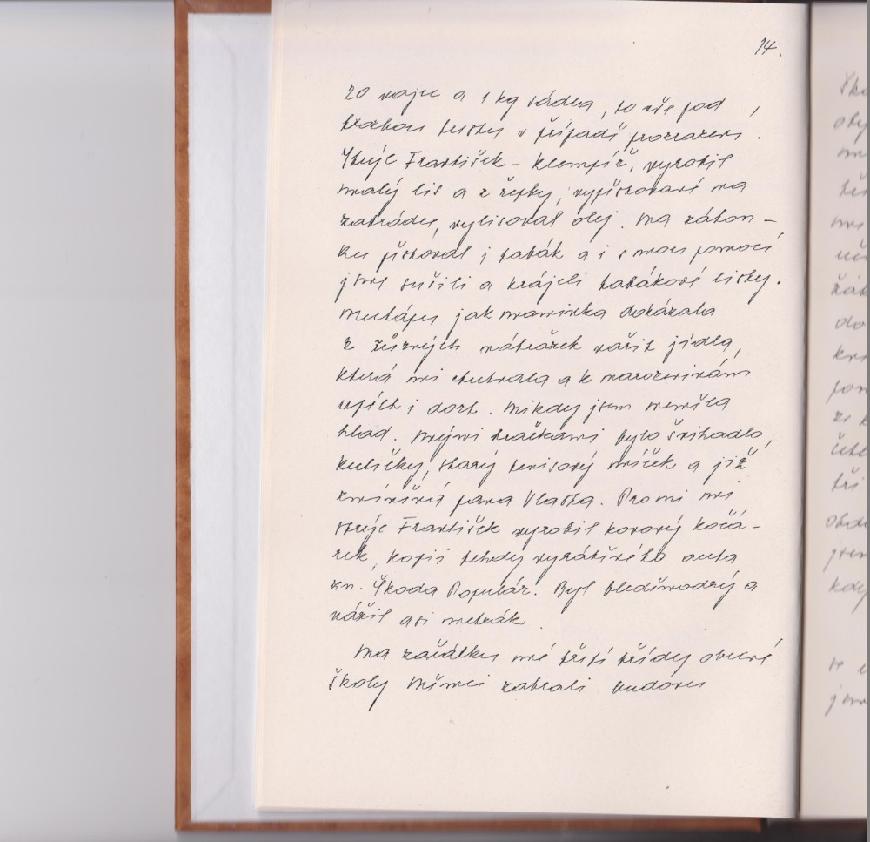 14.
20 vajec a 1 kg sádla, to vše pod
hrozbou trestu v případě prozrazení.
Strýc František - klempíř, vyrobil
malý lis a z řepky, vypěstované na
zahrádce, vylisoval olej. Na záhon-
ku pěstoval i tabák a i s mou pomocí
jsme sušili a krájeli tabákové listy.
Nechápu jak maminka dokázala
z různých náhražek vařit jídla,
která mi chutnala a k narozeninám
upéci i dort. Nikdy jsem neměla
hlad. Mými hračkami bylo švihadlo,
kuličky, starý tenisový míček a již
zmíněná panna Vlasta. Pro mě
strýc František vyrobil kovový kočá-
rek, kopii tehdy vyráběného auta
zn. Škoda Populár. Byl bleděmodrý a
vážil asi metrák.
Na začátku mé třetí třídy obecné
školy Němci zabrali budovu